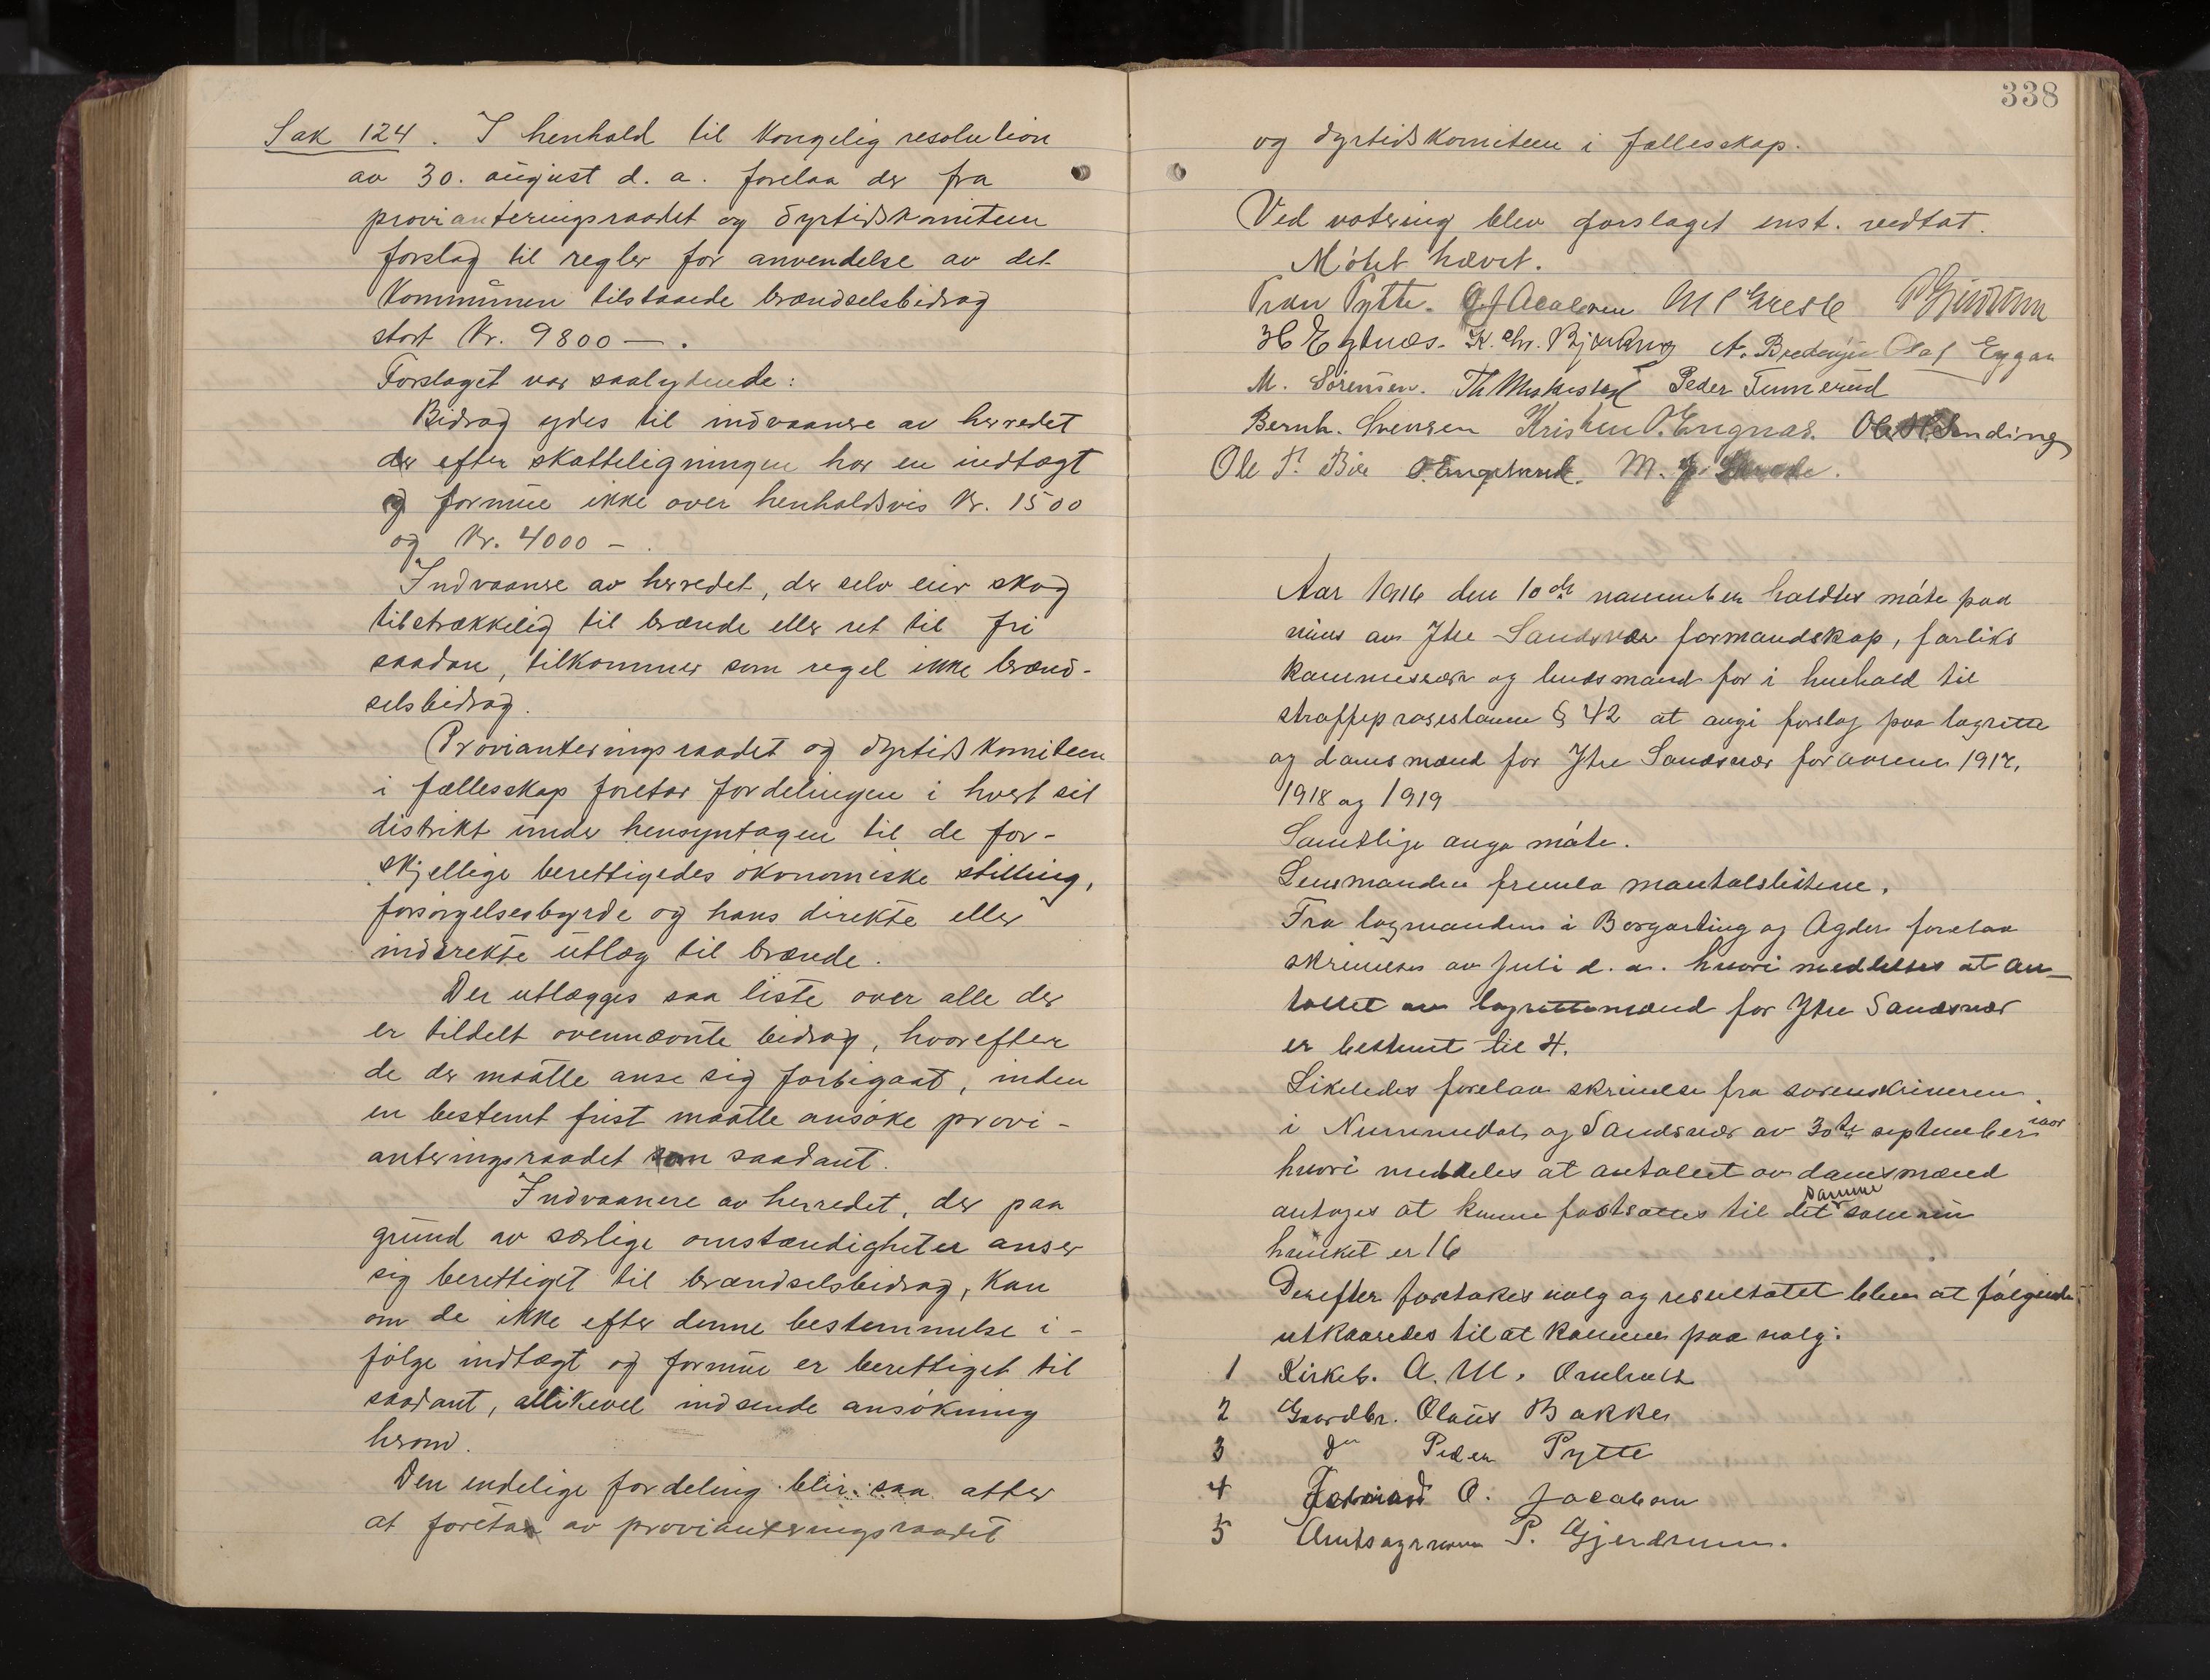 Sak 124. I henhold til Kongelig resolution
av 30. august d. a. forelaa der fra
provianteringsraadet og dyrtidskomiteen
forslag til regler for anvendelse av det
Kommunen tilstaaede brændselsbidrag
stort Kr. 9800 —.
Forslaget var saalydende:
Bidrag ydes til indvaanere av herredet
der efter skatteligningen har en indtægt
og formue ikke over henholdsvis Kr. 1500
og Kr. 4000 –.
Indvaanere av herredet, der selv eier skog
tilstrækkelig til brænde eller ret til fri
saadan, tilkommer som regel ikke brænd-
selsbidrag.
Provianteringsraadet og dyrtidskomiteen
i fællesskap foretar fordelingen i hvert sit
distrikt under hensyntagen til de for-
skjellige berettigedes økonomiske stilling,
forsørgelsesbyrde og hans direkte eller
indirekte utlæg til brænde.
Der utlægges saa liste over alle der
er tildelt ovennævnte bidrag, hvorefter
de der maatte anse sig forbigaat, inden
en bestemt frist maatte ansøke provi-
anteringsraadet om saadant.
Indvaanere av herredet, der paa
grund av særlige omstændigheter anser
sig berettiget til brændselsbidrag, kan
om de ikke efter denne bestemmelse i-
følge indtægt og formue er berettiget til
saadant, allikevel indsende ansøkning
herom.
Den endelige fordeling blir saa atter
at foreta av provianteringsraadet
338
og dyrtidskomiteen i fællesskap.
Ved votering blev forslaget enst. vedtat.
Møtet hævet.
Tran Pytte. M P Græsli P Gjerdrum
K. Chr. Bjerknes A. Bredesen Olaf Eggan
M. Sørensen. Th Peder Temmerud
Bernh. Svensen Kristen O. Engnæs. Ole H. Sending
Ole P. Bøe O. Englund. M. J.
Aar 1916 den 10de november holdtes møte paa
av Ytre Sandsvær formandskap, forliks
kommissær og lensmand for i henhold til
straffeproseslovens § 42 at avgi forslag paa lagrette
og domsmænd for Ytre Sandsvær for aarene 1917,
1918 og 1919
Samtlige avga møte.
Lensmanden fremla mantalslistene.
Fra lagmanden i Borgarting og Agder forelaa
skrivelse av juli d. a. hvori meddeltes at an-
tallet av lagrettemænd for Ytre Sandsvær
er bestemt til 4.
Likeledes forelaa skrivelse fra sorenskriveren
i Numedal og Sandsvær av 30te september iaar
hvori meddeles at antallet av domsmænd
antages at kunne fastsættes til det samme som nu
hvilket er 16
Derefter foretokes valg og resultatet blev at følgende
utkaaredes til at komme paa valg:
1 Kirkeb. A. M. Omholt
2 Gaardbr. Olaus Bakke
3 do Peder Pytte
4 O. Jacobsen
5 P. Gjerdrum.